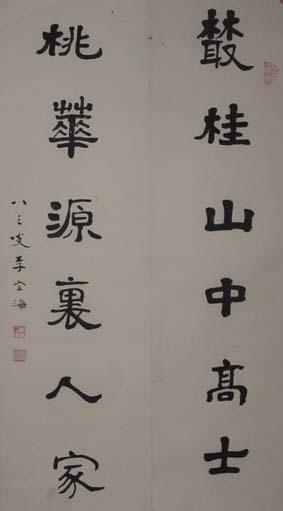 叢桂山中高士
桃華源裏人家
八三叟李宗海